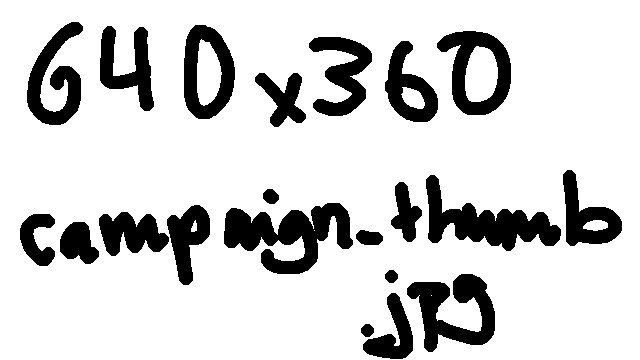 640x360
campaign_thumb
.jpg